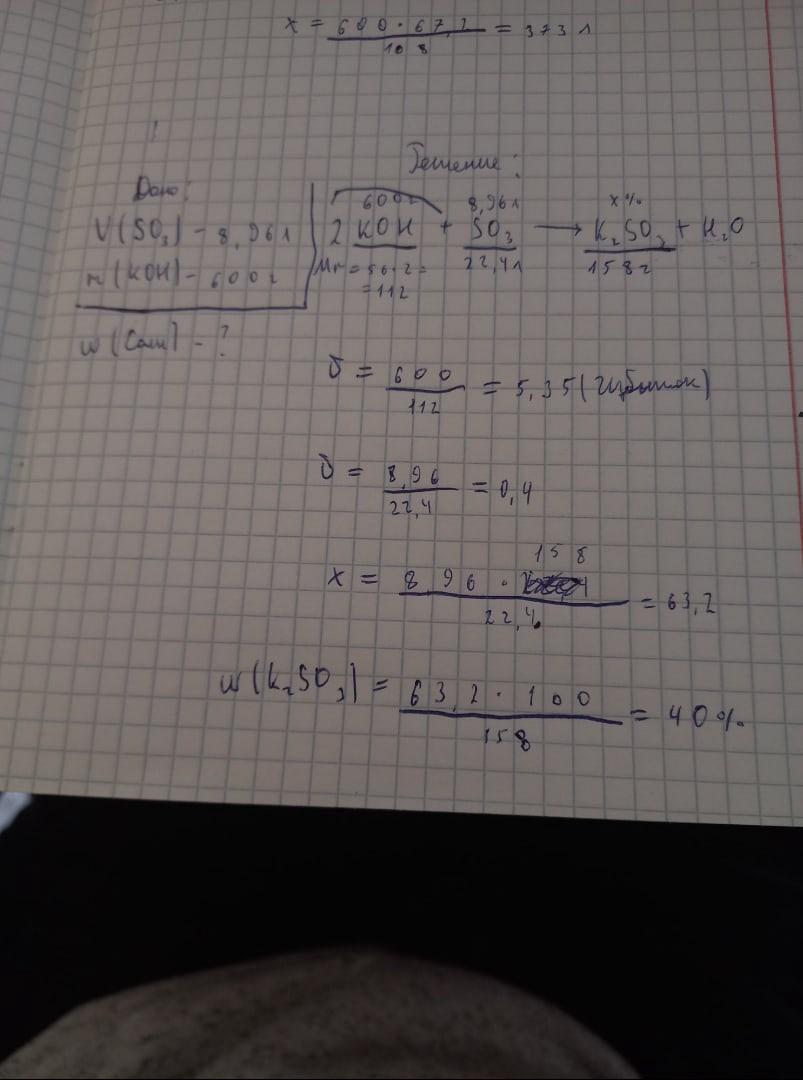 x = 600 · 67,2 / 108 = 373 л
Решение:
Дано:
V(SO3) - 8,96 л
m(KOH) - 600 г
w(Соли) - ?
600 г 8,96 л x %
2 KOH + SO3 → K2SO3 + H2O
Mr = 56·2 = 22,4 л 158 г
= 112
ν = 600 / 112 = 5,35 (избыток)
ν = 8,96 / 22,4 = 0,4
x = 8,96 · 158 / 22,4 = 63,2
w(K2SO3) = 63,2 · 100 / 158 = 40 %